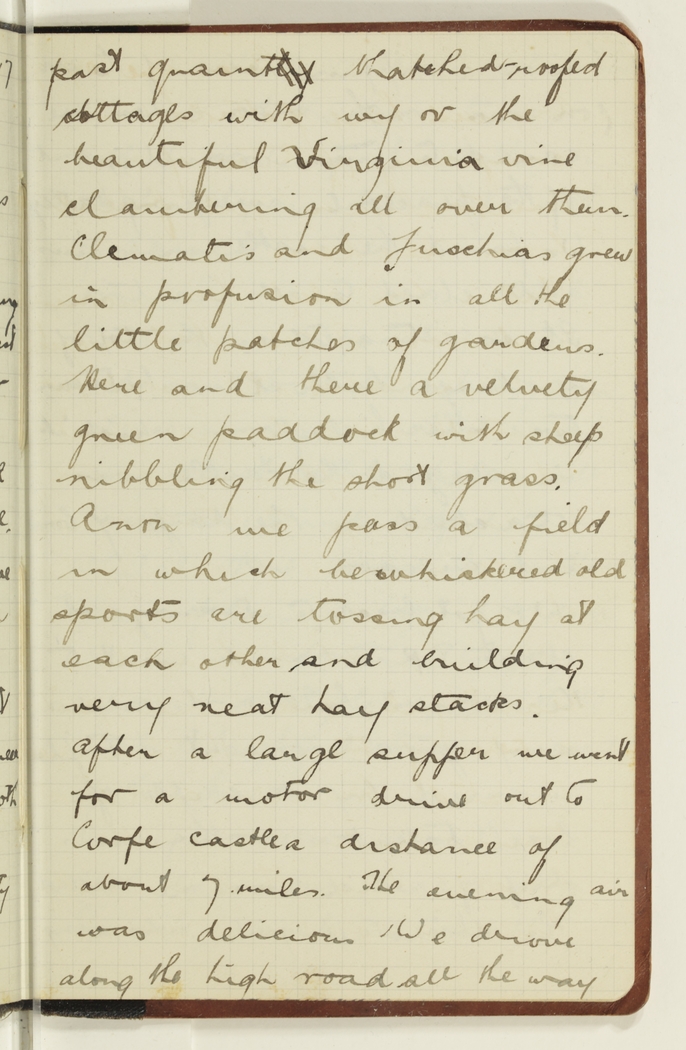 past quaint thatched-roofed
cottages with ivy or the
beautiful Virginia vine
clambering all over them.
Clematis and Fuschias grew
in profusion in all the
little patches of gardens.
Here and there a velvety
green paddock with sheep
nibbling the short grass.
Anon we pass a field
in which bewhiskered old
sports are tossing hay at
each other and building
very neat hay stacks.
After a large supper we went
for a motor drive out to
Corfe castle a distance of
about 7 miles. The evening air
was delicious We drove
along the high road all the way